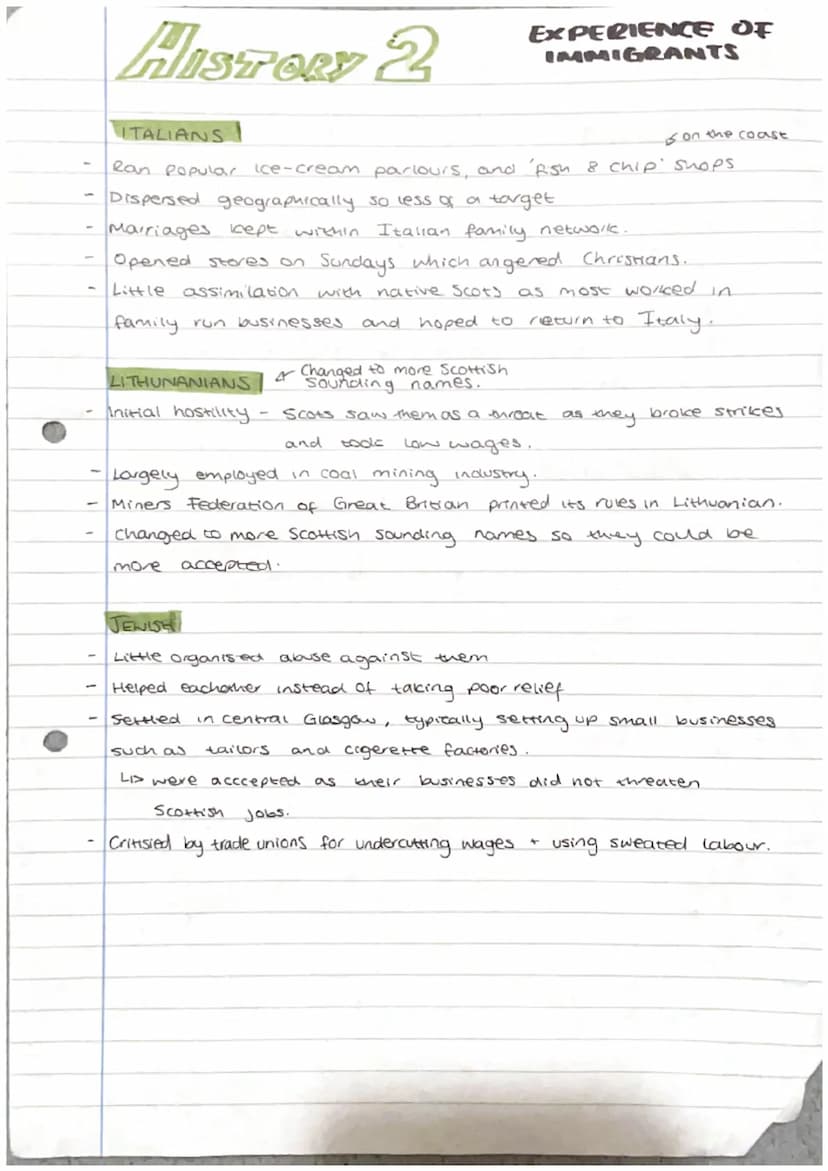 HISTORY 2
EXPERIENCE OF
IMMIGRANTS
ITALIANS
↳ on the coast
- Ran popular ice-cream parlours, and 'fish & chip' shops
- Dispersed geographically so less of a target
- Marriages kept within Italian family network.
- Opened stores on Sundays which angered Christians.
- Little assimilation with native Scots as most worked in
family run businesses and hoped to return to Italy.
LITHUNANIANS
Changed to more Scottish
sounding names.
- Initial hostility - Scots saw them as a threat as they broke strikes
and took low wages.
- Largely employed in coal mining industry.
- Miners Federation of Great Britian printed its rules in Lithuanian.
- Changed to more Scottish sounding names so they could be
more accepted.
JEWISH
- Little organised abuse against them
- Helped eachother instead of taking poor relief
- Settled in central Glasgow, typically setting up small businesses
such as tailors and cigerette factories.
↳ were acccepted as their businesses did not threaten
Scottish jobs.
- Critisied by trade unions for undercutting wages + using sweated labour.